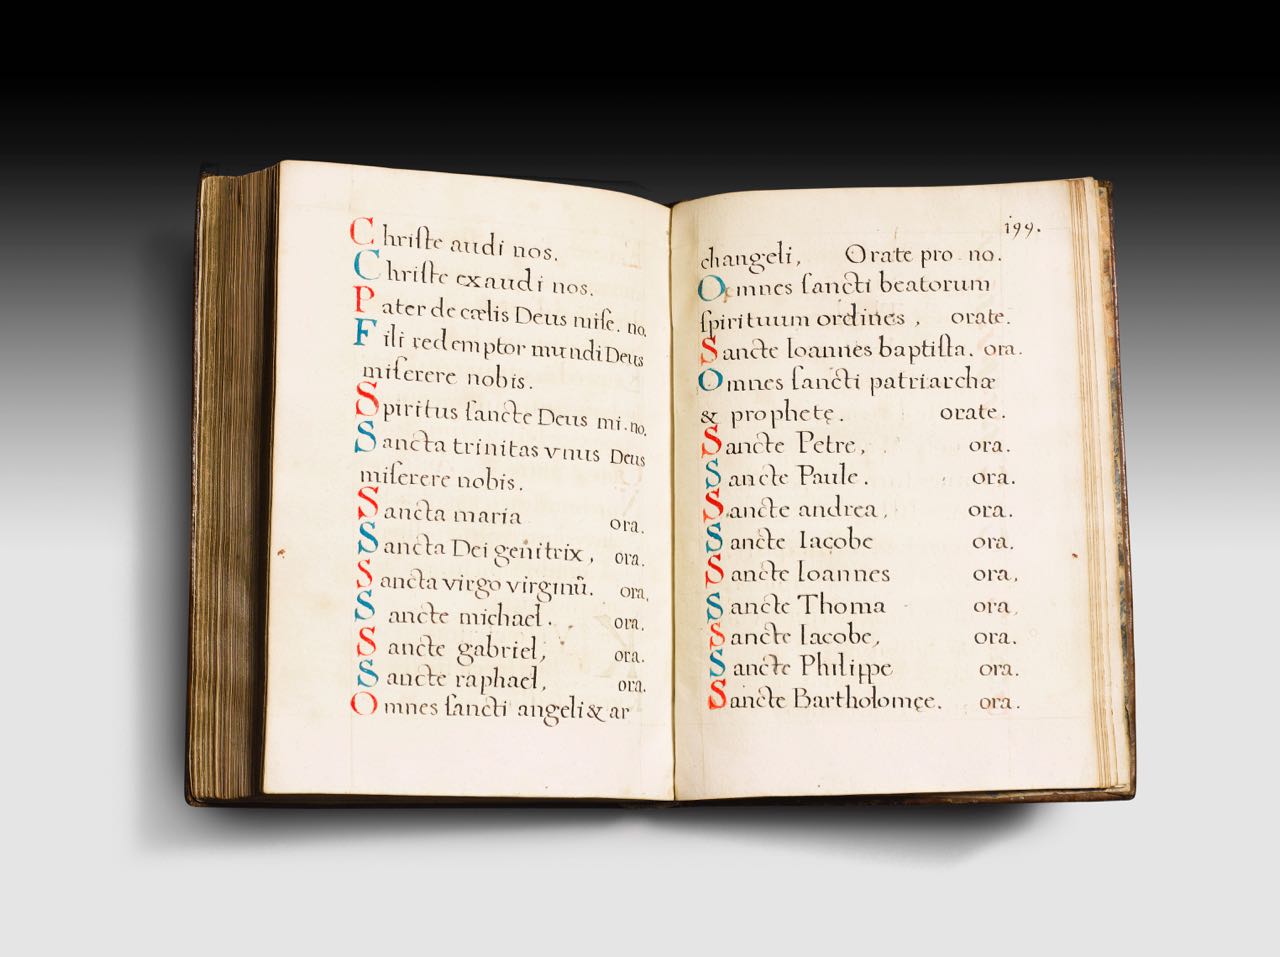 Chriſte audi nos.
Chriſte exaudi nos.
Pater de cælis Deus miſe. no.
Fili redemptor mundi Deus
miſerere nobis.
Spiritus ſancte Deus mi. no.
Sancta trinitas vnus Deus
miſerere nobis.
Sancta maria ora.
Sancta Dei genitrix, ora.
Sancta virgo virginũ. ora,
Sancte michael. ora,
Sancte gabriel; ora.
Sancte raphael, ora.
Omnes ſancti angeli & ar
199.
changeli, Orate pro no.
Omnes ſancti beatorum
ſpirituum ordines, orate.
Sancte Ioannes baptiſta. ora.
Omnes ſancti patriarchæ
& prophetę. orate.
Sancte Petre, ora.
Sancte Paule. ora.
Sancte andrea, ora.
Sancte Iacobe ora.
Sancte Ioannes ora,
Sancte Thoma ora,
Sancte Iacobe, ora.
Sancte Philippe ora.
Sancte Bartholomęe. ora.